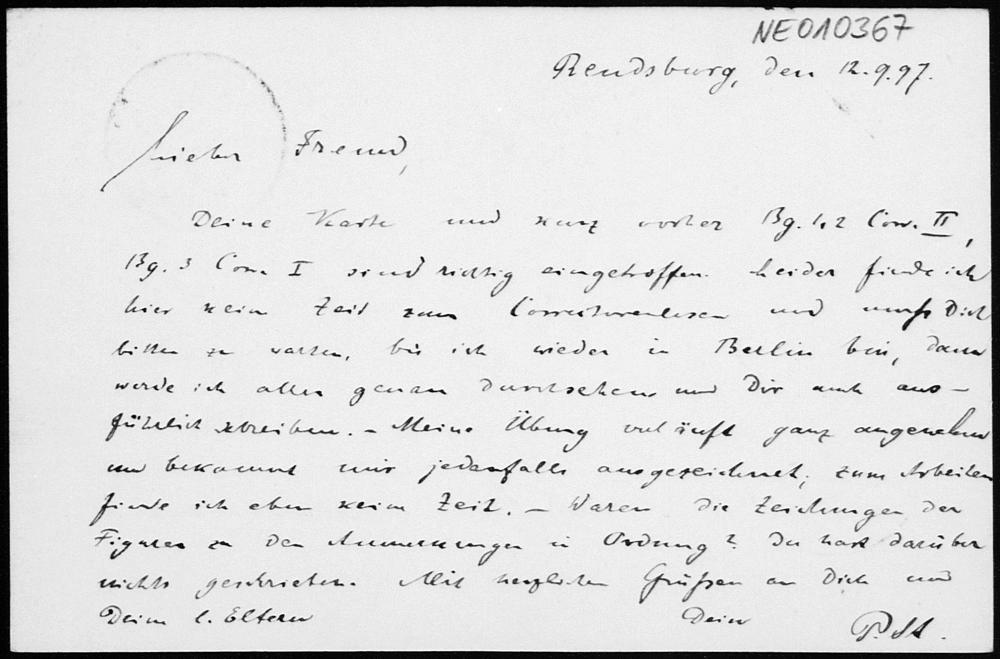 NE010367
Rendsburg, den 12.9.97.
Lieber Freund,
Deine Karte und kurz vorher Bg. 1, 2 Corr. II,
Bg. 3 Corr. I sind richtig eingetroffen. Leider finde ich
hier kein Zeit zum Correcturenlesen und muss Dich
bitten zu warten, bis ich wieder in Berlin bin, dann
werde ich alles genau durchsehen und Dir auch aus-
führlich schreiben. – Meine Übung verläuft ganz angenehm
und bekommt mir jedenfalls ausgezeichnet; zum Arbeiten
finde ich eben keine Zeit. – Waren die Zeichnungen der
Figuren zu den Anmerkungen in Ordnung? Du hast darüber
nichts geschrieben. Mit herzlichen Grüßen an Dich und
Deine l. Eltern Dein P. St.